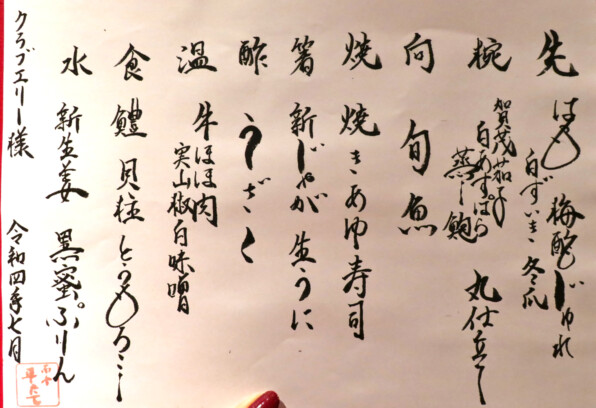 先 はも 梅酢じゅれ
白ずいき 冬瓜
椀 蒸し鮑 丸仕立て
賀茂茄子
白あすぱら
向 旬魚
焼 焼きあゆ寿司
箸 新じゃが 生うに
酢 うざく
温 牛ほほ肉
実山椒白味噌
食 鱧 貝柱 とうもろこし
水 新生姜 黒蜜ぷりん
クラブエリー様 令和四年七月